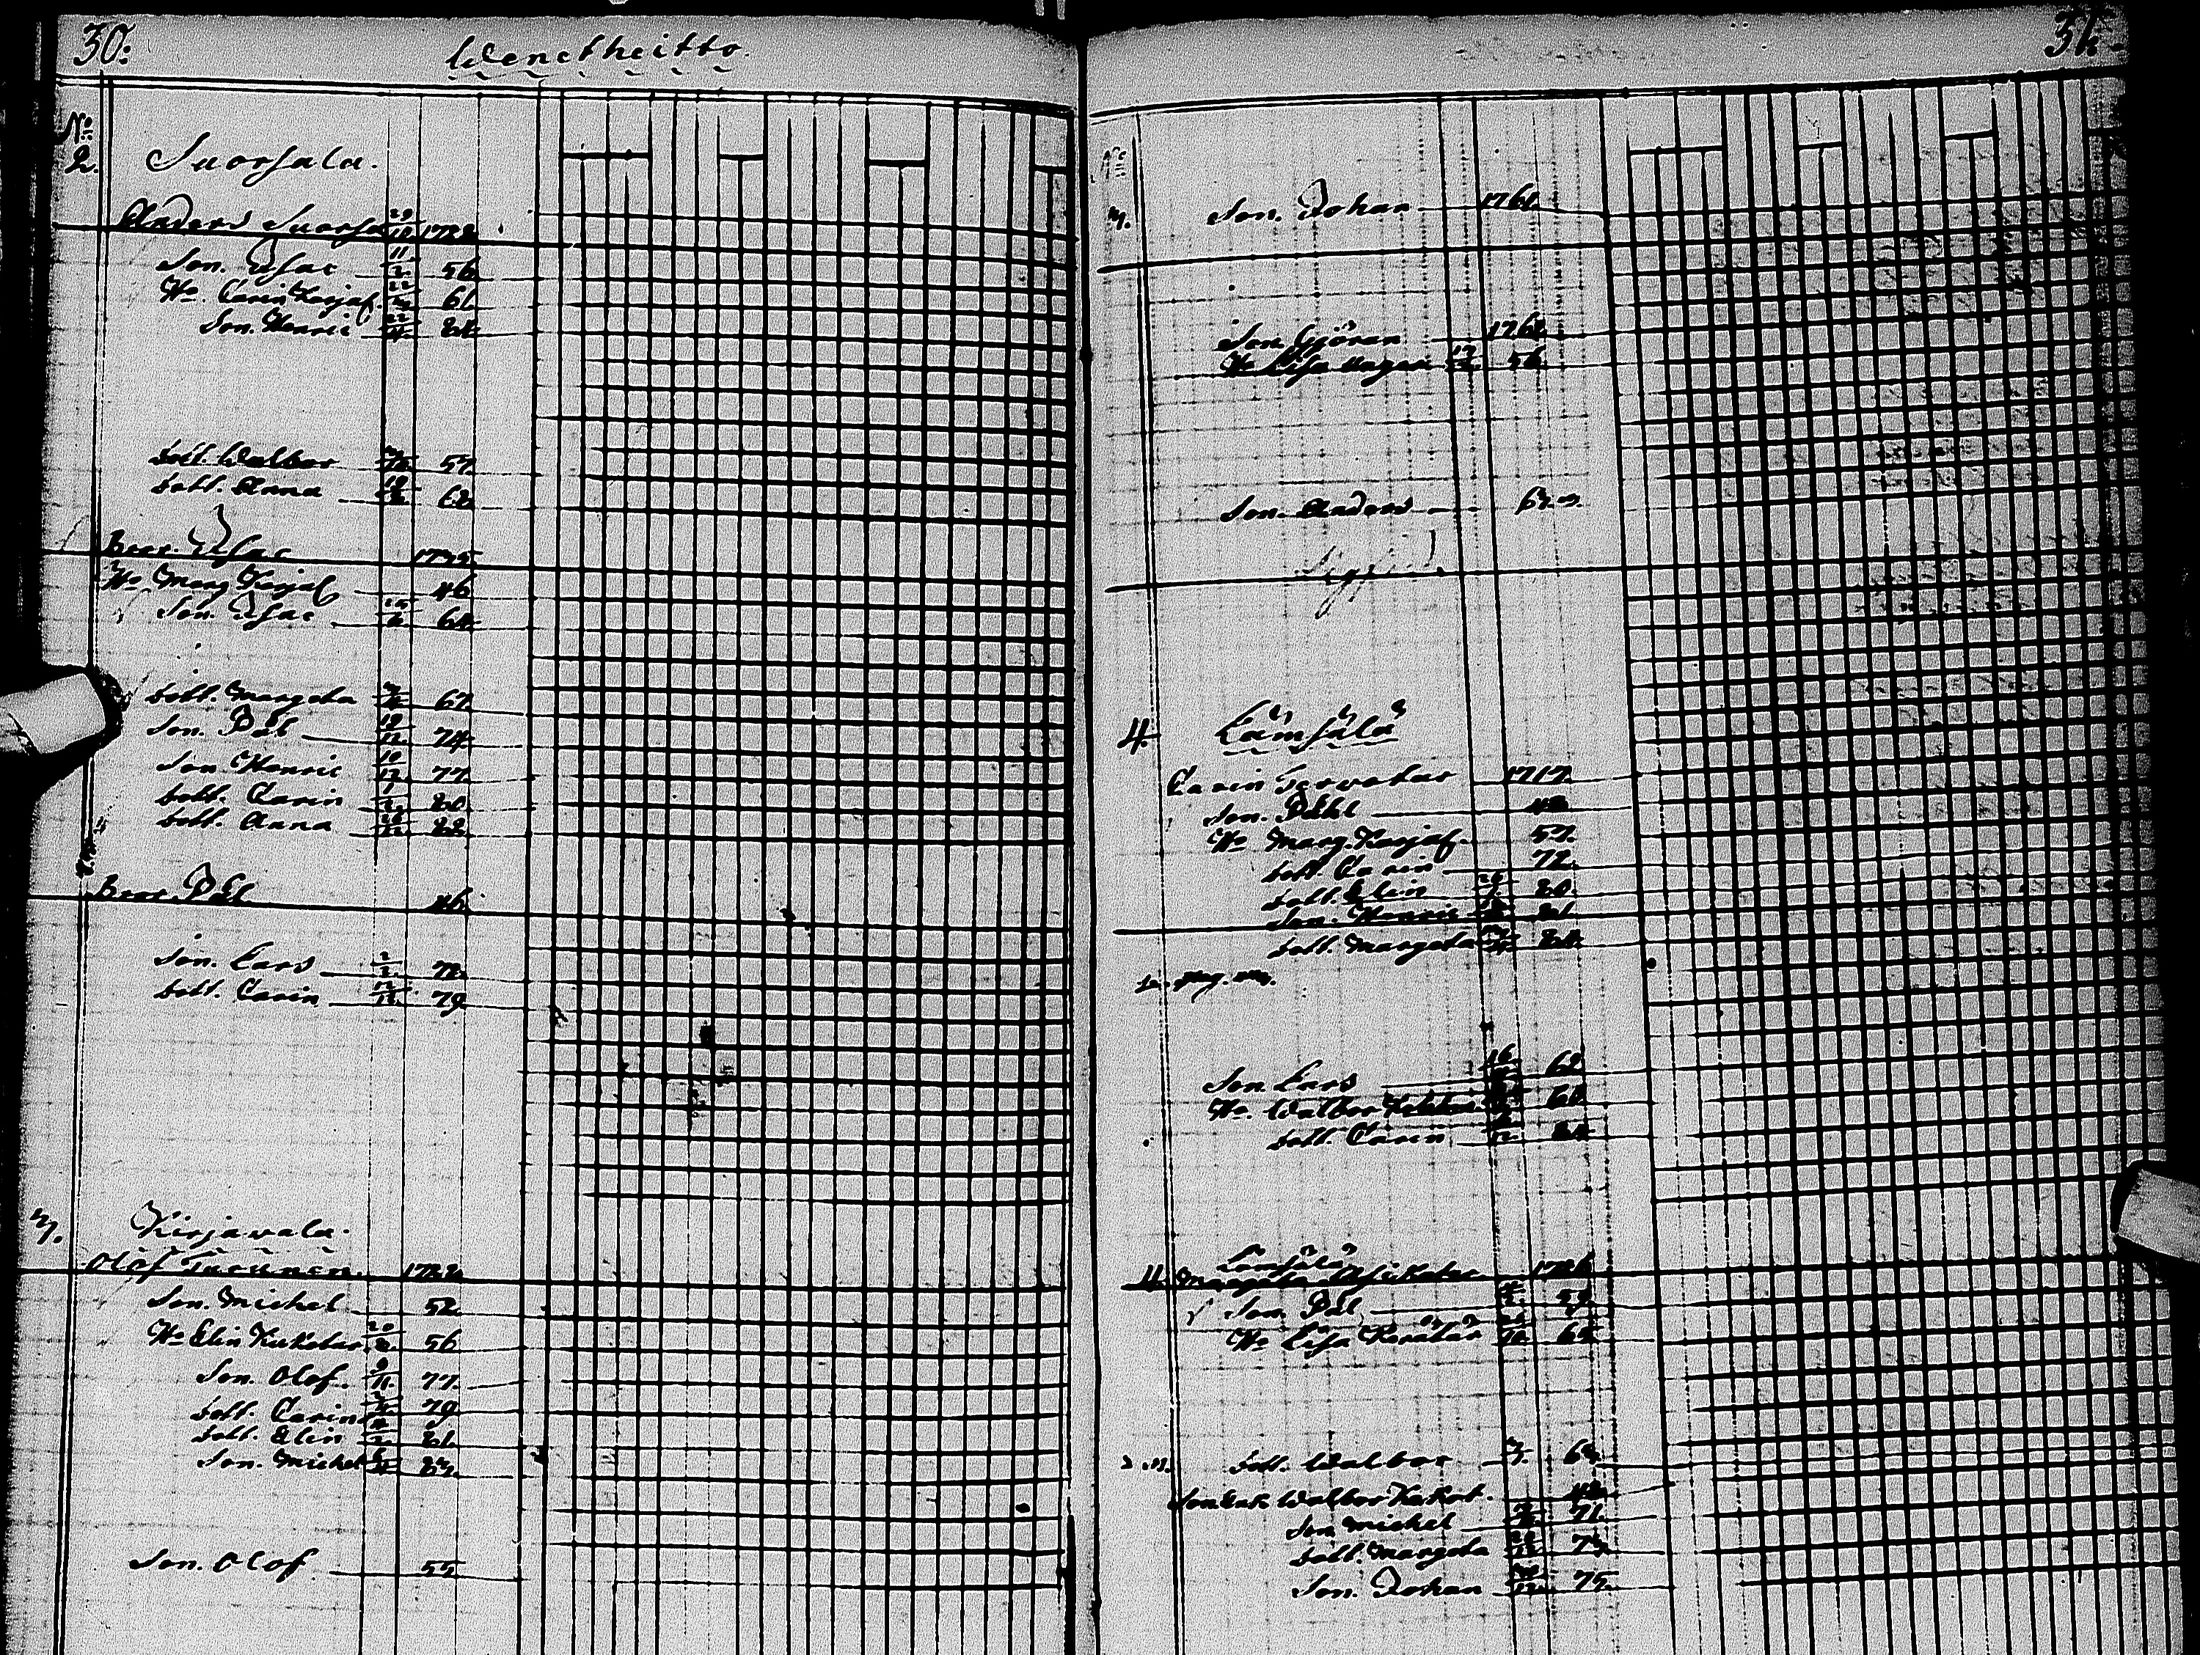 30.
Wenetheitto.
No
2. Suorsala.
Anders Suorsa 29/10 1722.
Son. Isac 11/2 56.
Ha. Carin Karjal. 22 61.
Son. Henric 22/4 84.
Dott. Walbor 57.
Dott. Anna 19 62.
Bror. Isac 1735.
Ha Marg Karjal 46
Son. Isac 64.
Dott. Margeta 67.
Son. Pål 19/12 74.
Son Henric 10 77.
Dott. Carin 80.
Dott. Anna 26/12 82.
Bror Pål 46.
Son. Lars 2/2 72.
Dott. Carin 12/12 79.
3. Kirjavala.
Olof Tucunen. 1722.
Son. Michel 52.
Ha Elin Kuketar 20 56
Son. Olof. 9/11 77.
Dott. Carin 79
Dott. Elin 81.
Son. Michel 83.
Son. Olof 55.
31.
No
3. Son. Johan 1761.
Son Gjöran 1762.
Ha Lisa 56.
Son. Anders 63.
4. Lämsälä
Carin Tervotar 1717.
Son. Påhl 48.
Ha Marg. Karjal. 53.
Dott. Carin 72.
Dott. Elin 26 80.
Son. Henric 81.
Dott. Margeta 84.
Son Lars 16 62.
Ha. Walbor 60.
Dott. Carin 84.
Lämsälä
4. Margeta 1726
Son. Pål 59.
Ha Lisa 65
Dott. Walbor 3/7. 63.
Son Enk Walbor Kakot. 42.
Son Michel 71.
Dott. Margeta 73.
Son. Johan 75.